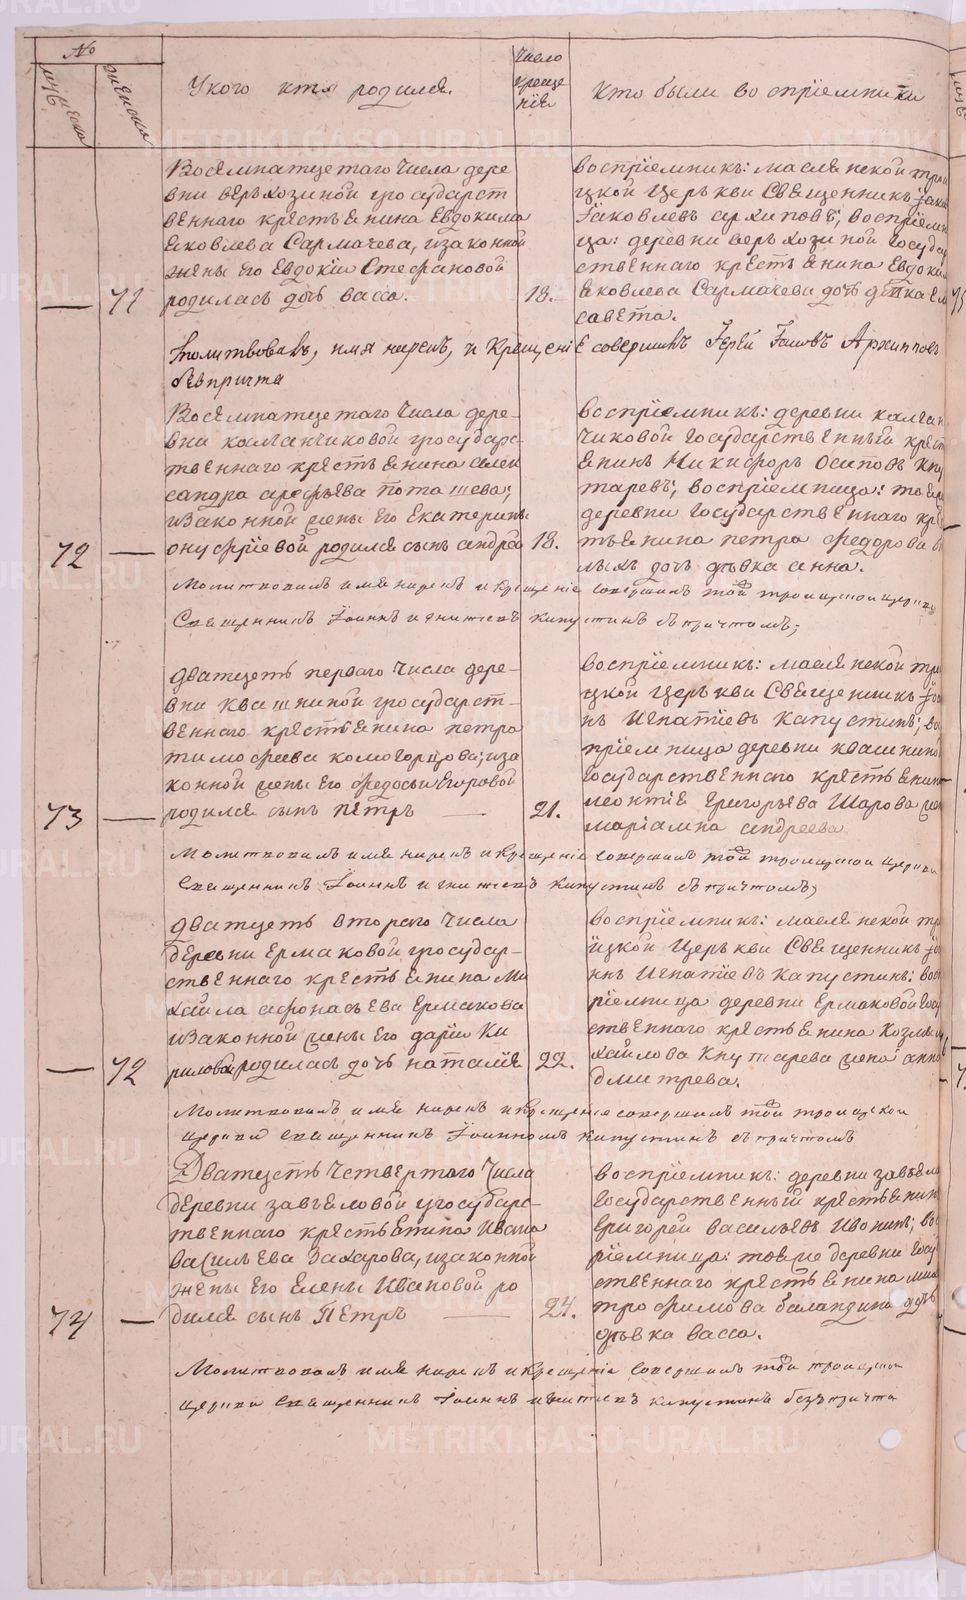 №
мужеска
женска
У кого кто родился.
Число
креще
нїя
Кто были восприемники
Восемнатцетаго Числа дере
вни верьхозиной государст
веннаго крестьенина Евдокима
Ековлева Сармачева, изаконной
жены Его Евдокїи Стефановой
71
родилась дочь васса.
18.
восприемникъ: маслянской трои
цкой Церькви Священникъ
Їаковлевъ архиповъ; восприемн
ца: деревни верьхозиной Государ
ственнаго крестьенина Евдоким
Ековлева Сармачева дочь девка Ели
савета.
молитвовалъ, имя нарекъ, и Крещение совершилъ Їерей Їаковъ Архиповъ
безпричта
Восемнатцетаго Числа дере-
вни калганчиковой государс-
твеннаго крестьенина алек
сандра арефьева поташева;
изаконной жены Его Екатерины
72
онуфриевой родился сынъ андрей
18.
восприемникъ: деревни калган
чиковой Государственный крест
енинъ Никифоръ Осиповъ Кну
таревъ; восприемница: тоеже
деревни Государственнаго кре
тьенина петра федорова
лыхъ дочь девка анна.
Молитвовалъ имя нарекъ и крещение совершилъ той троицкои церкви
Священникъ Їоаннъ игнатьевъ Капустинъ съ причтомъ;
дватцеть перваго Числа дере-
вни квашниной государст-
веннаго крестьенина петра
тимофеева комогорцова; иза
конной жены Его федосьи Егоровой
73
родился сынъ пётръ
21.
восприемникъ: маслянской тро
цкой Церькви Священникъ Їоан
нъ Игнатїевъ Капустинъ; вос
приемница деревни квашниной
Государственнаго крестьенина
леонтїя григорьева Шарова жена
марїамна андреева
Молитвовалъ имя нарекъ и крещение совершилъ той троицкои церкви
Священникъ Їоаннъ игнатьевъ Капустинъ съ причтомъ;
дватцеть втораго Числа
деревни Ермаковой государ-
ственнаго крестьенина Ми
хаила афонасьева Ермакова
изаконной жены Его дарїи Ки
72
риловой родилась дочь наталїя
22.
восприемникъ: маслянской тро
ицкой Церькви Священникъ Їоа
ннъ Игнатїевъ Капустинъ; вос
риемница деревни Ермаковой Госу
дственнаго крестьенина Козмы ми
хайлова Кнутарева жена анна
дмитрева.
Молитвовалъ имя нарекъ и крещение совершилъ той троицкои
церкви Священникъ Їоанномъ Капустинъ съ причтомъ
Дватцеть Четвертаго Числа
деревни завьяловой государс-
твеннаго крестьенина Ивана
васильева Захарова, изаконной
жены Его Елены Ивановой ро
74
дился сынъ Пётръ
24.
восприемникъ: деревни завьяло
Государственный крестьенинъ
Григорей васильевъ Ивонинъ; вос
риемница: тоеже деревни Госу
дственнаго крестьенина
трофимова баландина дочь
девка васса.
Молитвовалъ имя нарекъ и крещение совершилъ той троицкои
церкви Священникъ Їоаннъ игнатьевъ Капустинъ безъ причта